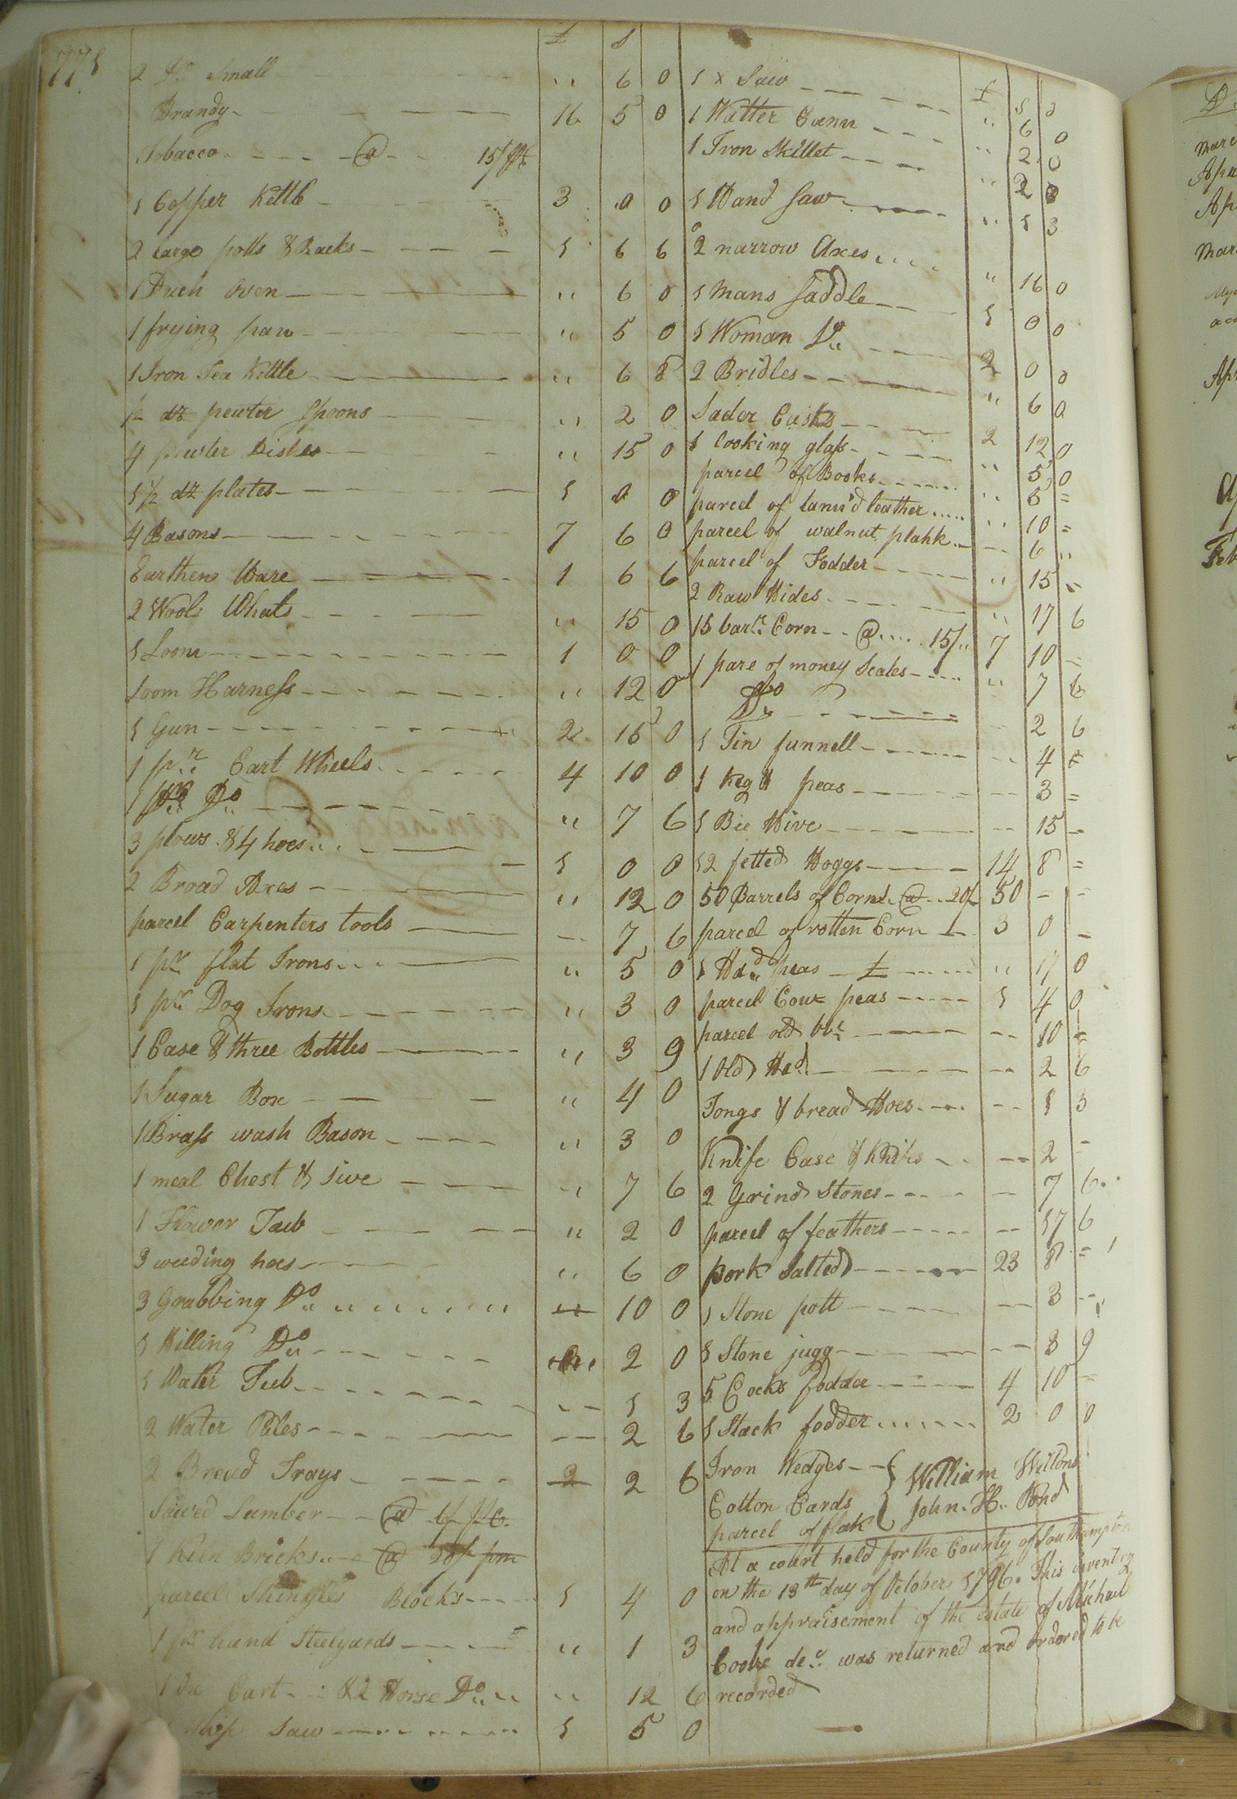 £ s
2 Do. Small " 6 0
Brandy 16 5 0
Tobacco @ 15/
1 Copper Kettle 3 0 0
2 Large potts & Racks 1 6 6
1 Duch Oven " 6 0
1 frying pan " 5 0
1 Iron Tea Kettle " 6 8
½ dz pewter Spoons " 2 0
4 pewter Dishes " 15 0
1½ dz plates 1 0 0
4 Basons 7 6 0
Earthen Ware 1 6 6
2 Whals " 15 0
1 Loom 1 0 0
Loom Harness " 12 0
1 Gun 2 15 0
1 pr. Cart Wheels 4 10 0
1 Do " 7 6
3 plows & 4 hoes 1 0 0
2 Broad Axes " 12 0
parcel Carpenters tools 7 6
1 pr flat Irons " 5 0
1 pr Dog Irons " 3 0
1 Case & three Bottles " 3 9
1 Sugar Box " 4 0
1 Brass wash Bason " 3 0
1 meal Chest & Sive " 7 6
1 Flower Tub " 2 0
3 weeding hoes " 6 0
3 Grubbing Do " 10 0
1 Hilling Do 2 0
1 Water Tub 1 3
2 Water Pales 2 6
2 Bread Trays 2 6
Sawed Lumber @
1 Kiln Bricks @
parcel Shingles Blocks 1 4 0
1 pr hand Steelyards " 1 3
1 Ox Cart & 2 Horse Do " 12 6
Whip Saw 1 5 0
£ s d
1 x Saw " 6 0
1 Watter " 2 0
1 Iron Skillet " 2
1 Hand Saw " 1 3
2 narrow Axes " 16 0
1 Mans Saddle 1 0 0
1 Woman Do 2 0 0
2 Bridles " 6 0
Casks 2 12 0
1 looking glass " 5 0
parcel of Books " 5 =
parcel of tann'd leather " 10 =
parcel of walnut plank 6 "
parcel of Fodder " 15 =
2 Raw Hides " 17 6
15 barls Corn @ 15/ 7 10
1 pare of money Scales " 7 6
Do 2 6
1 Tin funnell 4
1 Keg & peas 3 =
1 Bee Hive 15
12 fetted Hoggs 14 8 =
50 Barrels of Corn @ 20/ 50
parcel of rotten Corn 3 0
1 Hhd peas " 17 0
parcel Cow peas 1 4 0
parcel old bbs 10
1 Old Hhd 2 6
Tongs & bread Hoes 1 3
Knife Case & Knifes 2
2 Grind Stones 7 6
parcel of feathers 17 6
pork Salted 23 8 =
1 Stone pott 3
1 Stone jugg 3 9
5 Cocks fodder 4 10 =
1 Stack fodder 2 0 0
Iron Wedges
Cotton Cards
parcel of flax
William
John. H. Pond
At a court held for the County of Southampton
on the 13th day of October 1796. This inventory
and appraisement of the estate of Michael
Cooke decd was returned and ordered to be
recorded